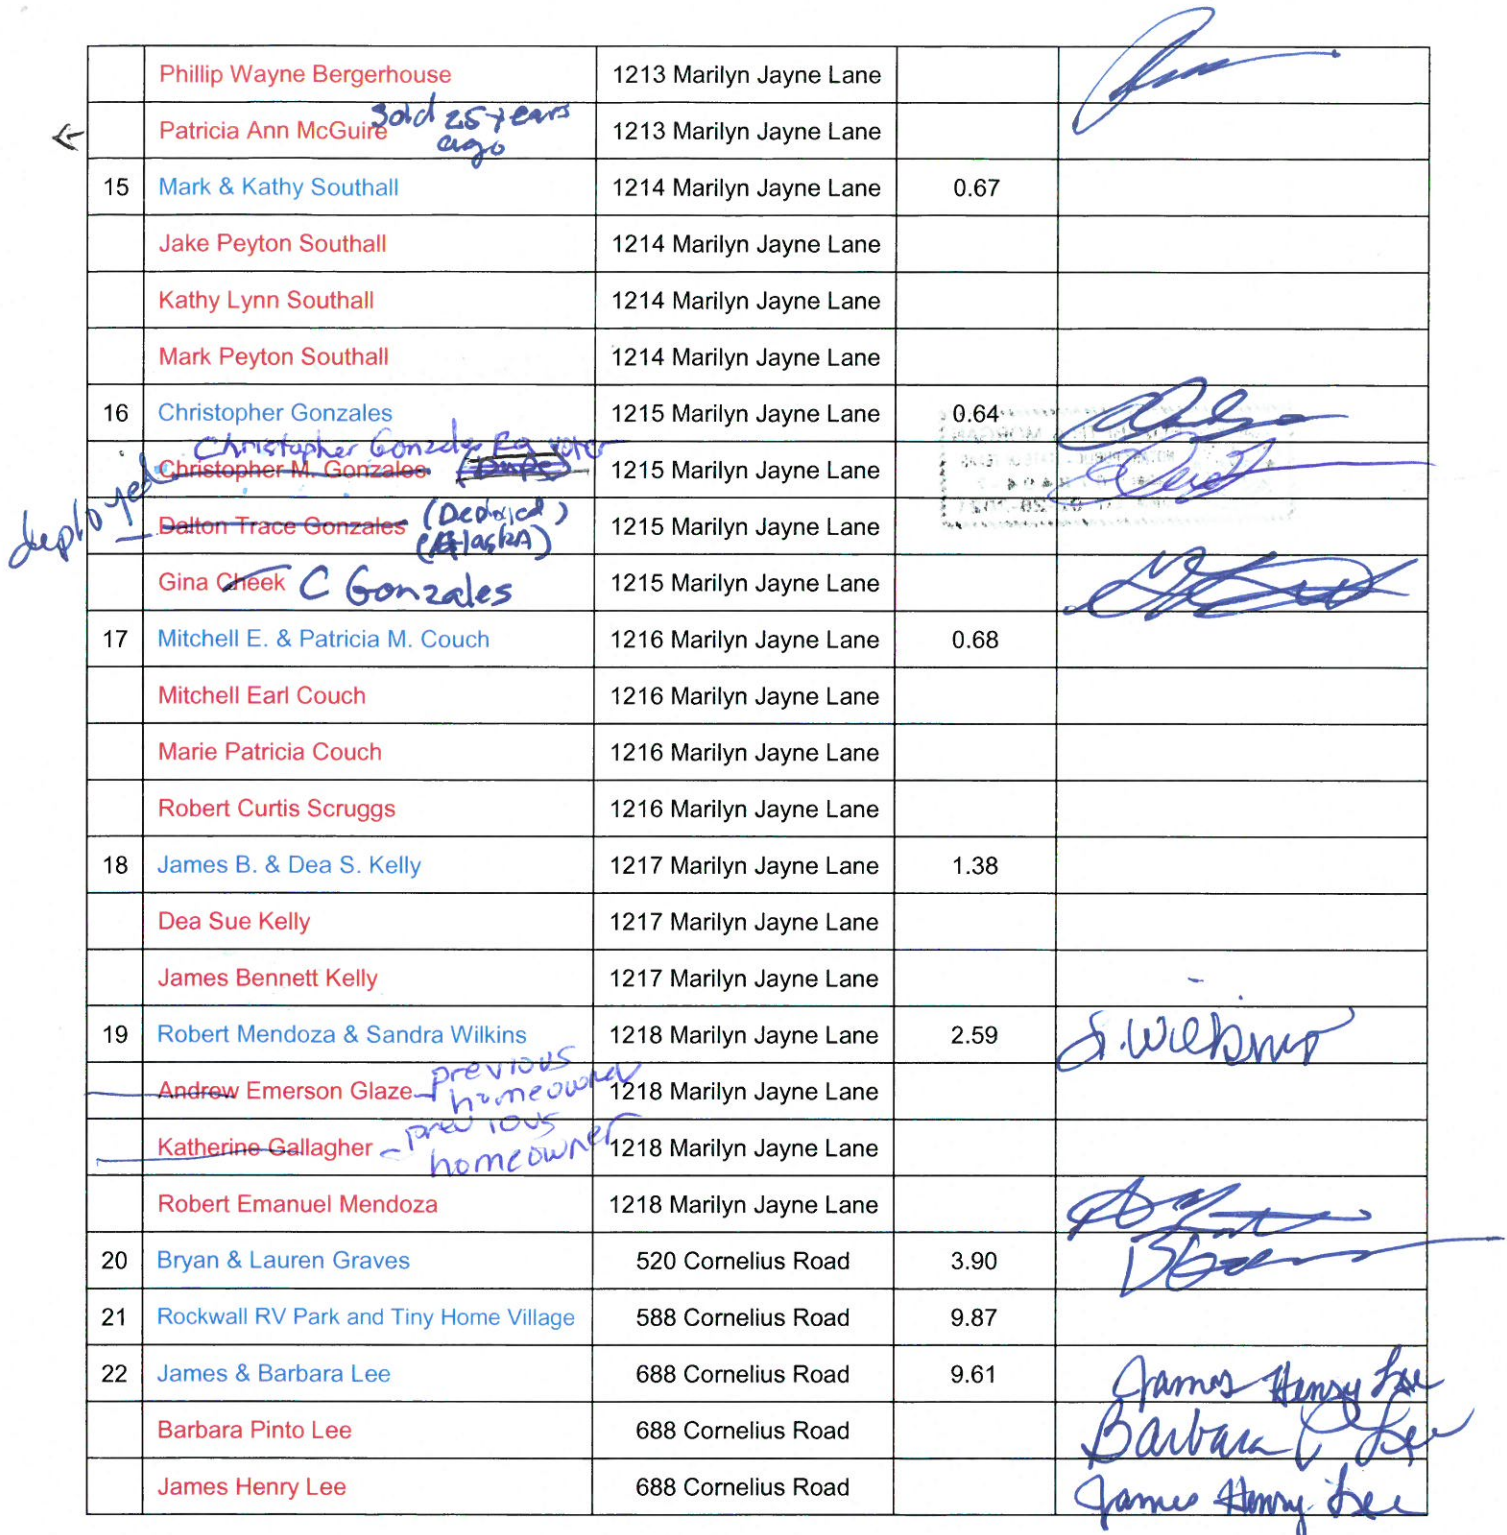 Phillip Wayne Bergerhouse 1213 Marilyn Jayne Lane
Patricia Ann McGuire sold 25 years ago 1213 Marilyn Jayne Lane
15 Mark & Kathy Southall 1214 Marilyn Jayne Lane 0.67
Jake Peyton Southall 1214 Marilyn Jayne Lane
Kathy Lynn Southall 1214 Marilyn Jayne Lane
Mark Peyton Southall 1214 Marilyn Jayne Lane
16 Christopher Gonzales 1215 Marilyn Jayne Lane 0.64
Christopher Gonzales Reg voter
Christopher M. Gonzales 1215 Marilyn Jayne Lane
deployed Dalton Trace Gonzales (Deployed) (Alaska) 1215 Marilyn Jayne Lane
Gina Cheek C Gonzales 1215 Marilyn Jayne Lane
17 Mitchell E. & Patricia M. Couch 1216 Marilyn Jayne Lane 0.68
Mitchell Earl Couch 1216 Marilyn Jayne Lane
Marie Patricia Couch 1216 Marilyn Jayne Lane
Robert Curtis Scruggs 1216 Marilyn Jayne Lane
18 James B. & Dea S. Kelly 1217 Marilyn Jayne Lane 1.38
Dea Sue Kelly 1217 Marilyn Jayne Lane
James Bennett Kelly 1217 Marilyn Jayne Lane
19 Robert Mendoza & Sandra Wilkins 1218 Marilyn Jayne Lane 2.59 S. Wilkins
Andrew Emerson Glaze - previous homeowner 1218 Marilyn Jayne Lane
Katherine Gallagher - previous homeowner 1218 Marilyn Jayne Lane
Robert Emanuel Mendoza 1218 Marilyn Jayne Lane
20 Bryan & Lauren Graves 520 Cornelius Road 3.90
21 Rockwall RV Park and Tiny Home Village 588 Cornelius Road 9.87
22 James & Barbara Lee 688 Cornelius Road 9.61 James Henry Lee
Barbara Pinto Lee 688 Cornelius Road Barbara P Lee
James Henry Lee 688 Cornelius Road James Henry Lee